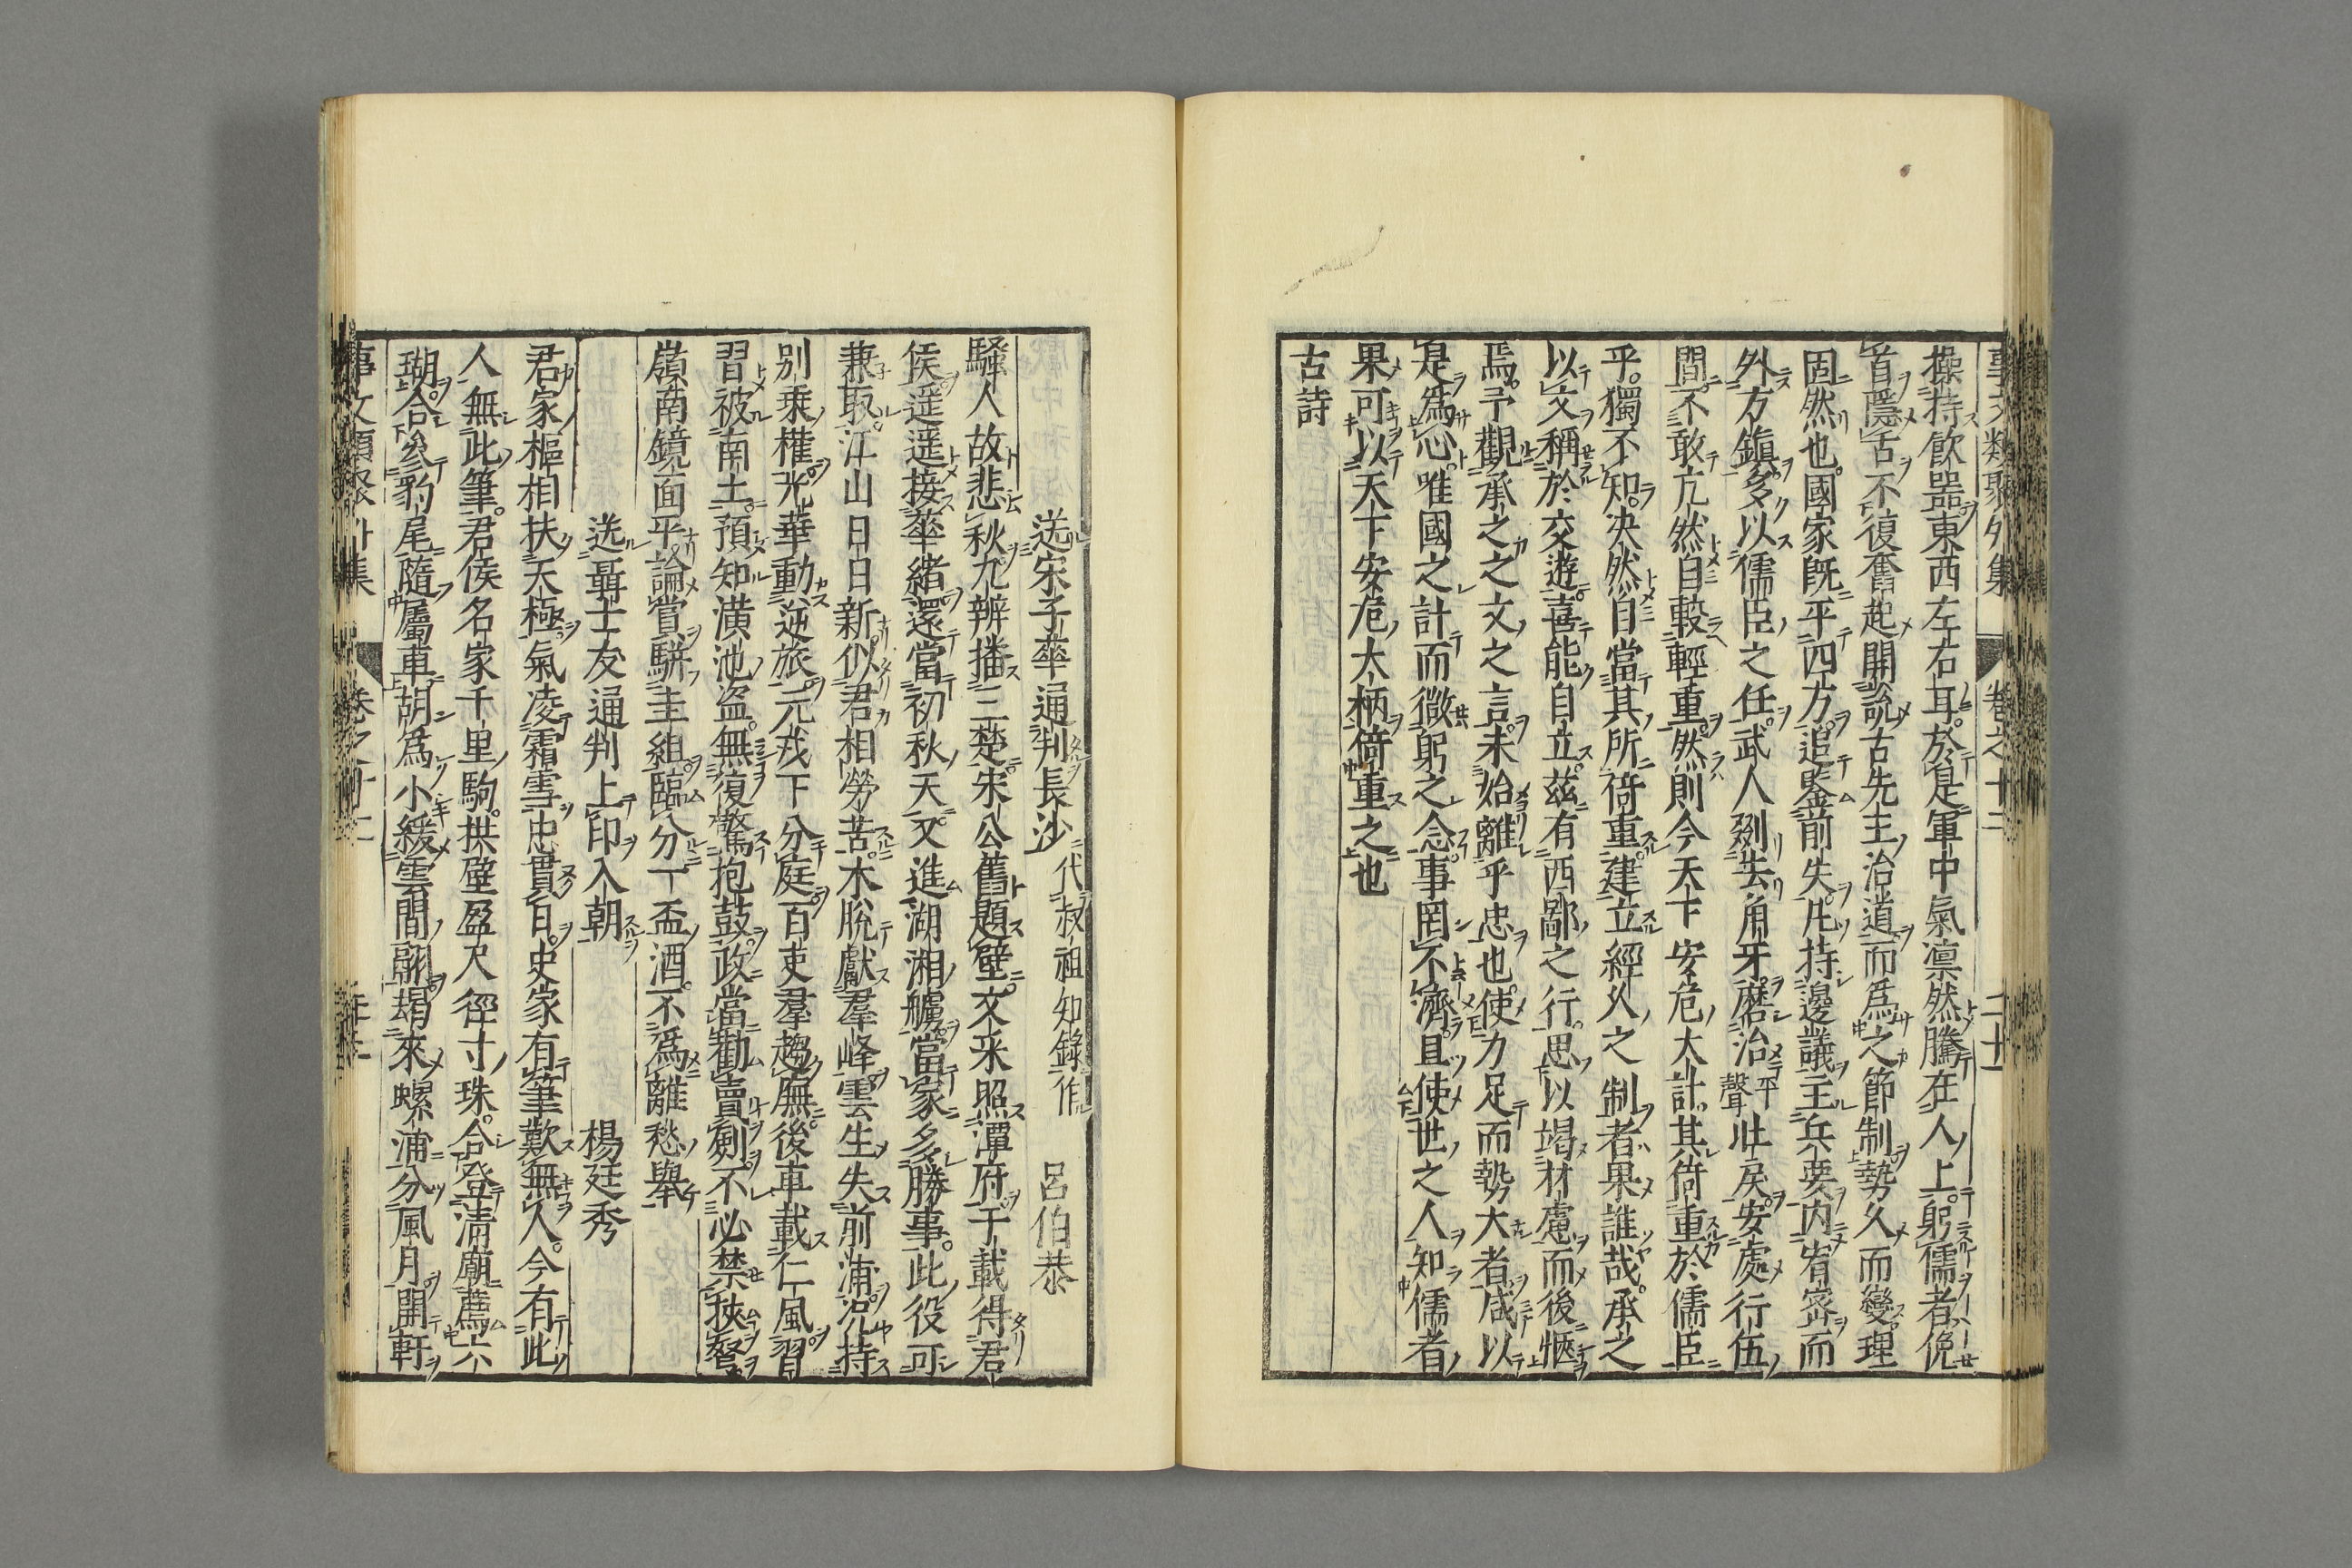 事文類聚外集 卷之十二 二十一
操持飲器東西左右耳於是軍中氣凛然騰在人上躬儒者俛
首隱舌不復奮起開說古先王治道而爲之節制勢久而變理
固然也國家旣平四方追鑒前失凡持邊議主兵要内宥密而
外方鎭多以儒臣之任武人剟去角牙磨治平聲壯戾安處行伍
間不敢亢然自較輕重然則今天下安危大計其倚重於儒臣
乎獨不知决然自當其所倚重建立經久之制者果誰哉承之
以文稱於交遊喜能自立茲有西鄙之行思以竭材慮而後愜
焉予觀承之之文之言未始離乎忠也使力足而勢大者咸以
是爲心唯國之計而微躬之念事罔不濟且使世之人知儒者
果可以天下安危大柄倚重之也
古詩
送宋子華通判長沙 代叔祖知錄作 呂伯恭
騷人故悲秋九辨播三楚宋公舊題壁文采照潭府千載得君
侯遥遥接華緒還當初秋天又進湖湘艫當家多勝事此役可
兼取江山日日新似君相勞苦木脫獻羣峰雲生失前浦况持
别乘權光華動逆旅元戎下分庭百吏羣趨廡後車載仁風習
習被南土預知潢池盗無復驚抱鼓政當勸賣劍不必禁挾弩
嶺南鏡面平論賞駢圭組臨分一盃酒不爲離愁舉
送聶士友通判上印入朝 楊廷秀
君家樞相扶天極氣凌霜雪忠貫日史家有筆歎無人今有此
人無此筆君侯名家千里駒拱璧盈尺徑寸珠合登清廟薦六
瑚合參豹尾隨屬車胡爲小緩雲間翮朅來螺浦分風月開軒
事文類聚外集 卷之十二